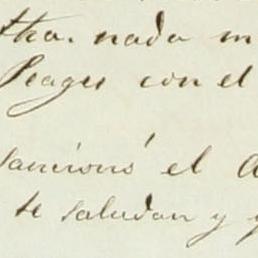 tha. nada m
Peages con el
sancionó el
te saludan y y